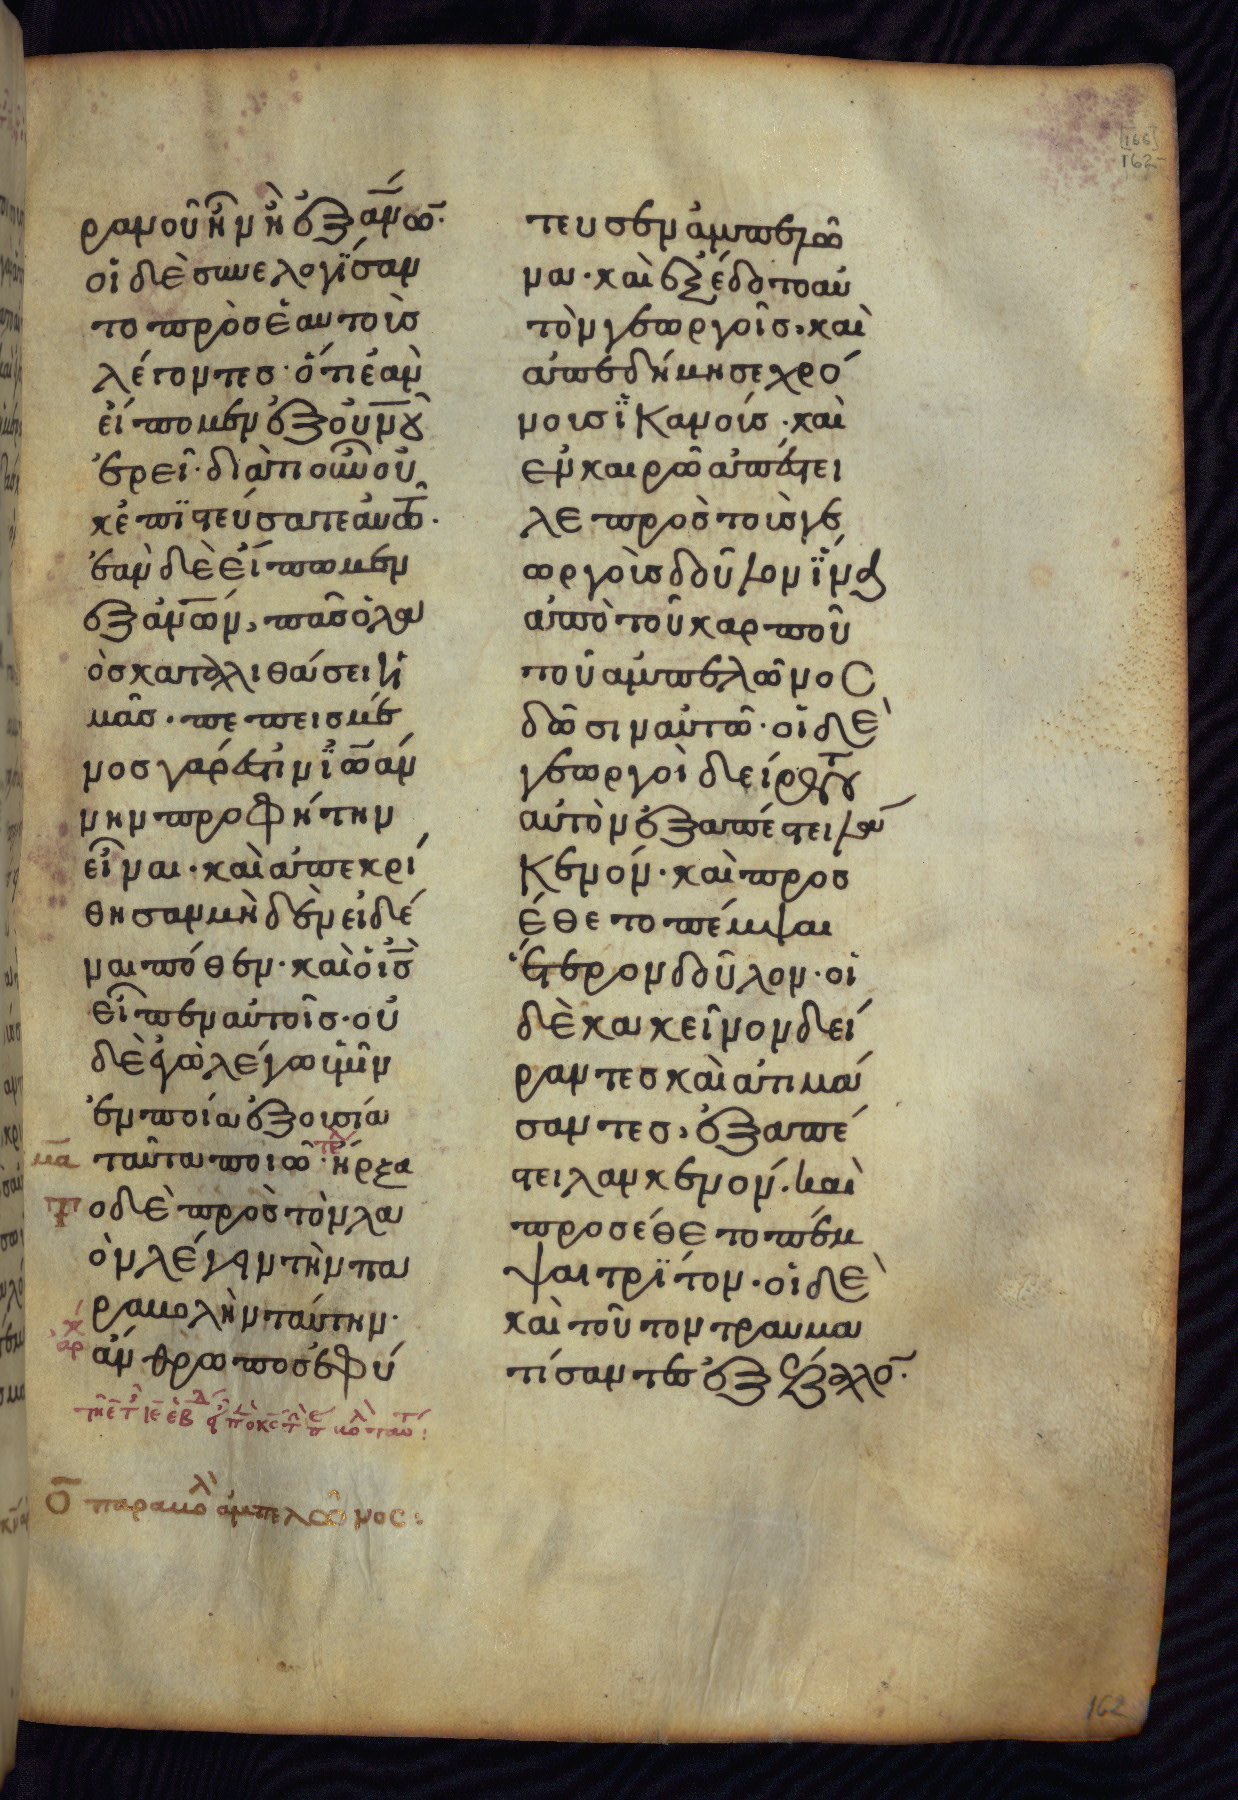 ραμοῦ ἦν ἢ ἐξ ἀν̅ω̅ν·
οἱ δὲ συνελογίσαν
το πρὸς ἑαυτοὺς
λέγοντες· ὅτι ἐὰν
εἴπομεν ἐξ οὐν̅ου
ἐρεῖ· διατί οὖν οὐ
κ ἐπιστεύσατε αὐτῶ·
ἐὰν δὲ εἴπωμεν
ἐξ ἀν̅ω̅ν, πᾶς ὁ λα
ὸς καταλιθάσει ἡ
μᾶς· πεπεισμέ
νος γάρ ἐστιν ἰω̅άν
νην προφήτην
εἶναι· καὶ ἀπεκρί
θησαν μὴ δὲν εἰδέ
ναι πόθεν· καὶ ὁ ι̅ς̅
εἶπεν αὐτοῖς· οὐ
δὲ ἐγὼ λέγω ὑμῖν
ἐν ποία ἐξουσία
ταῦτα ποιῶ· ἤρξα
το δὲ πρὸς τὸν λα
ὸν λέγειν τὴν πα
ραβολὴν ταύτην·
ἄνθρωπος ἐφύ
Ο̅ παραβολ ἀμπελῶνος:
τευσεν ἀμπελῶ
να· καὶ ἐξέδοτο αὐ
τὸν γεωργοῖς, καὶ
ἀπεδήμησε χρό
νους ἱκανούς· καὶ
ἐν καιρῶ ἀπέστει
λε πρὸς τοὺς γε
ωργοὺς δοῦλον ἵνα
ἀπὸ τοῦ καρποῦ
τοῦ ἀμπελῶνος
δῶσιν αὐτῶ· οἱ δὲ
γεωργοὶ δείραντες
αὐτὸν ἐξαπέστειλαν
κενόν· καὶ προσ
έθετο πέμψαι
ἕτερον δοῦλον· οἱ
δὲ κακεῖνον δεί
ραντες καὶ ἀτιμά
σαντες, ἐξαπέ
στειλαν κενόν· καὶ
προσέθετο πέμ
ψαι τρίτον· οἱ δὲ
καὶ τοῦτον τραυμα
τίσαντες ἐξέβαλον·
[166]
162
162